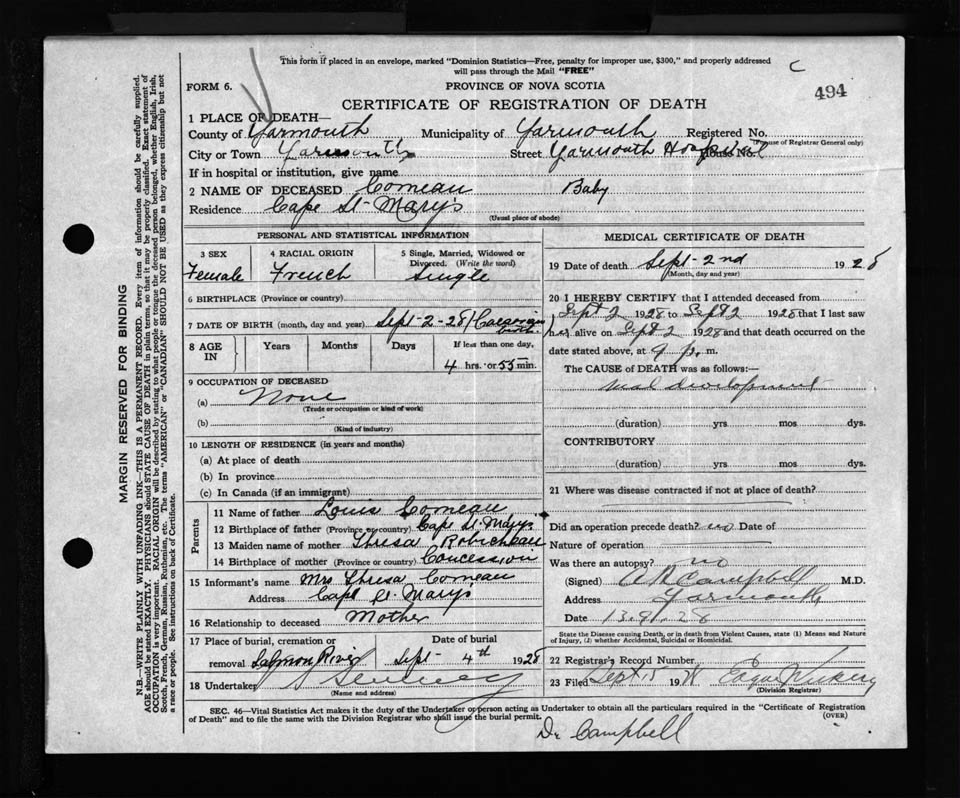 This form if placed in an envelope, marked "Dominion Statistics—Free, penalty for improper use, $300," and properly addressed
will pass through the Mail "FREE"
C
494
FORM 6.
PROVINCE OF NOVA SCOTIA
CERTIFICATE OF REGISTRATION OF DEATH
1 PLACE OF DEATH—
County of Yarmouth Municipality of Yarmouth Registered No.
(For use of Registrar General only)
City or Town Yarmouth Street Yarmouth Hospital House No.
If in hospital or institution, give name
2 NAME OF DECEASED Comeau Baby
Residence Cape St-Mary's
(Usual place of abode)
PERSONAL AND STATISTICAL INFORMATION
3 SEX 4 RACIAL ORIGIN 5 Single, Married, Widowed or Divorced. (Write the word)
Female French Single
6 BIRTHPLACE (Province or country)
7 DATE OF BIRTH (month, day and year) Sept-2-28
8 AGE IN Years Months Days If less than one day,
4 hrs. or 55 min.
9 OCCUPATION OF DECEASED
(a) None
(Trade or occupation or kind of work)
(b)
(Kind of industry)
10 LENGTH OF RESIDENCE (in years and months)
(a) At place of death
(b) In province
(c) In Canada (if an immigrant)
Parents
11 Name of father Louis Comeau
12 Birthplace of father (Province or country) Cape St-Marys
13 Maiden name of mother Thresa Robicheau
14 Birthplace of mother (Province or country) Concession
15 Informant's name Mrs Thresa Comeau
Address Cape St Mary's
16 Relationship to deceased Mother
17 Place of burial, cremation or removal Salmon River Date of burial Sept- 4th 1928
18 Undertaker
(Name and address)
MEDICAL CERTIFICATE OF DEATH
19 Date of death Sept-2nd 1928
(Month, day and year)
20 I HEREBY CERTIFY that I attended deceased from
Sept 2 1928 to Sept 2 1928 that I last saw
her alive on Sept 2 1928 and that death occurred on
date stated above, at 9 p. m.
The CAUSE of DEATH was as follows:—
mal development
(duration) yrs mos dys.
CONTRIBUTORY
(duration) yrs mos dys.
21 Where was disease contracted if not at place of death?
Did an operation precede death? no Date of
Nature of operation
Was there an autopsy? no
(Signed) Campbell M.D.
Address Yarmouth
Date 13.9.28
State the Disease causing Death, or in death from Violent Causes, state (1) Means and Nature
of Injury, (2) whether Accidental, Suicidal or Homicidal.
22 Registrar's Record Number
23 Filed Sept 15 1928 Edgar
(Division Registrar)
SEC. 46—Vital Statistics Act makes it the duty of the Undertaker or person acting as Undertaker to obtain all the particulars required in the "Certificate of Registration
of Death" and to file the same with the Division Registrar who shall issue the burial permit.
(OVER)
Dr Campbell
MARGIN RESERVED FOR BINDING
N.B—WRITE PLAINLY WITH UNFADING INK—THIS IS A PERMANENT RECORD. Every item of information should be carefully supplied.
AGE should be stated EXACTLY. PHYSICIANS should STATE CAUSE OF DEATH in plain terms, so that it may be properly classified. Exact statement of
OCCUPATION is very important. RACIAL ORIGIN will be described by stating to what people or tongue the deceased person belonged, whether English, Irish,
Scotch, French, German, Russian, Ruthenian, etc. The terms "AMERICAN" or "CANADIAN" SHOULD NOT BE USED as they express citizenship but not
a race or people. See instructions on back of Certificate.